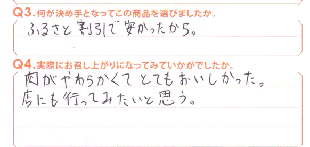 Q3.何が決め手となってこの商品を選びましたか。
ふるさと割引で安かったから。
Q4.実際にお召し上がりになってみていかがでしたか。
肉がやわらかくてとてもおいしかった。
店にも行ってみたいと思う。